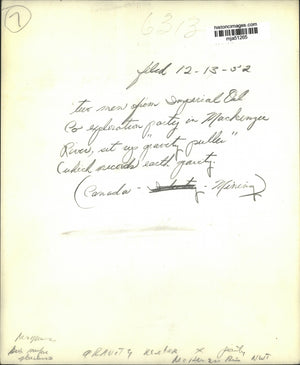 7
6313
historicimages.com
mja51265
filed 12-13-52
two men from Imperial Oil
Co exploration party in Mackenzie
River, set up "gravity puller"
(which records earth gravity
(Canada - - Mining)
GRAVITY Meter X party
McKenzie Riv NWT